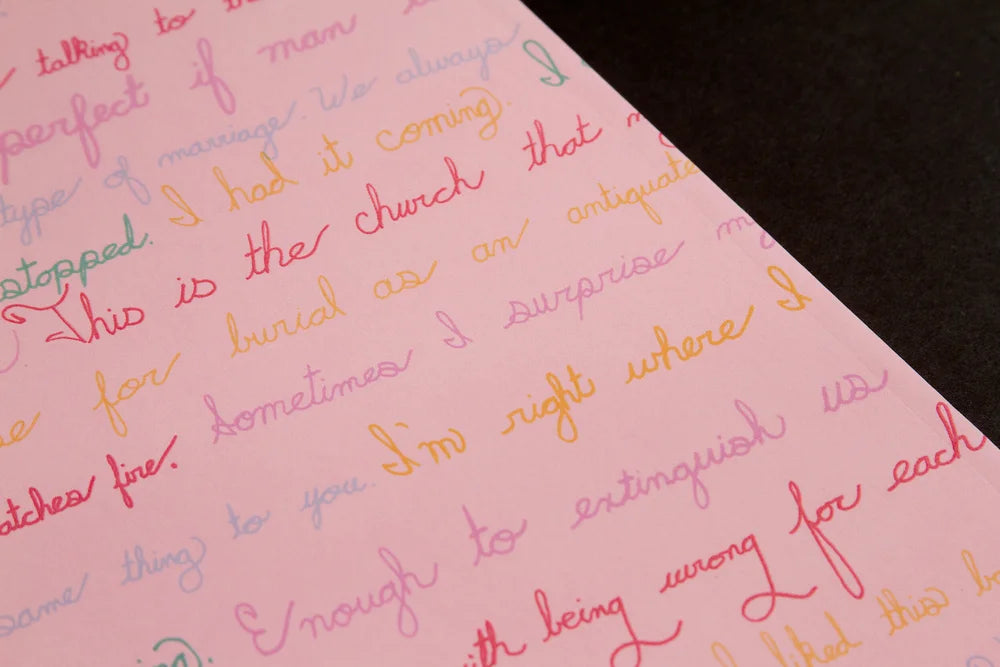 talking to
perfect if man
type of marriage. We always
stopped. I had it coming. I
This is the church that
for burial as an antiquate
Sometimes I surprise my
atches fire.
same thing to you. I'm right where I
Enough to extinguish us
with being wrong for each
I liked this